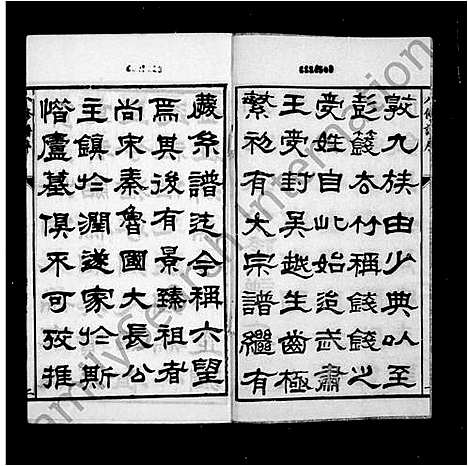 敦九族由少典以至
彭籛厺竹稱錢錢之
受姓自此始迨武肅
王受封吳越生齒極
繁初有大宗譜繼有
慶系譜迄今稱六望
焉其後有景臻祖者
尚宋秦魯國大長公
主鎮於潤遂家於斯
惜廬墓俱不可攷推
FamilySearch International